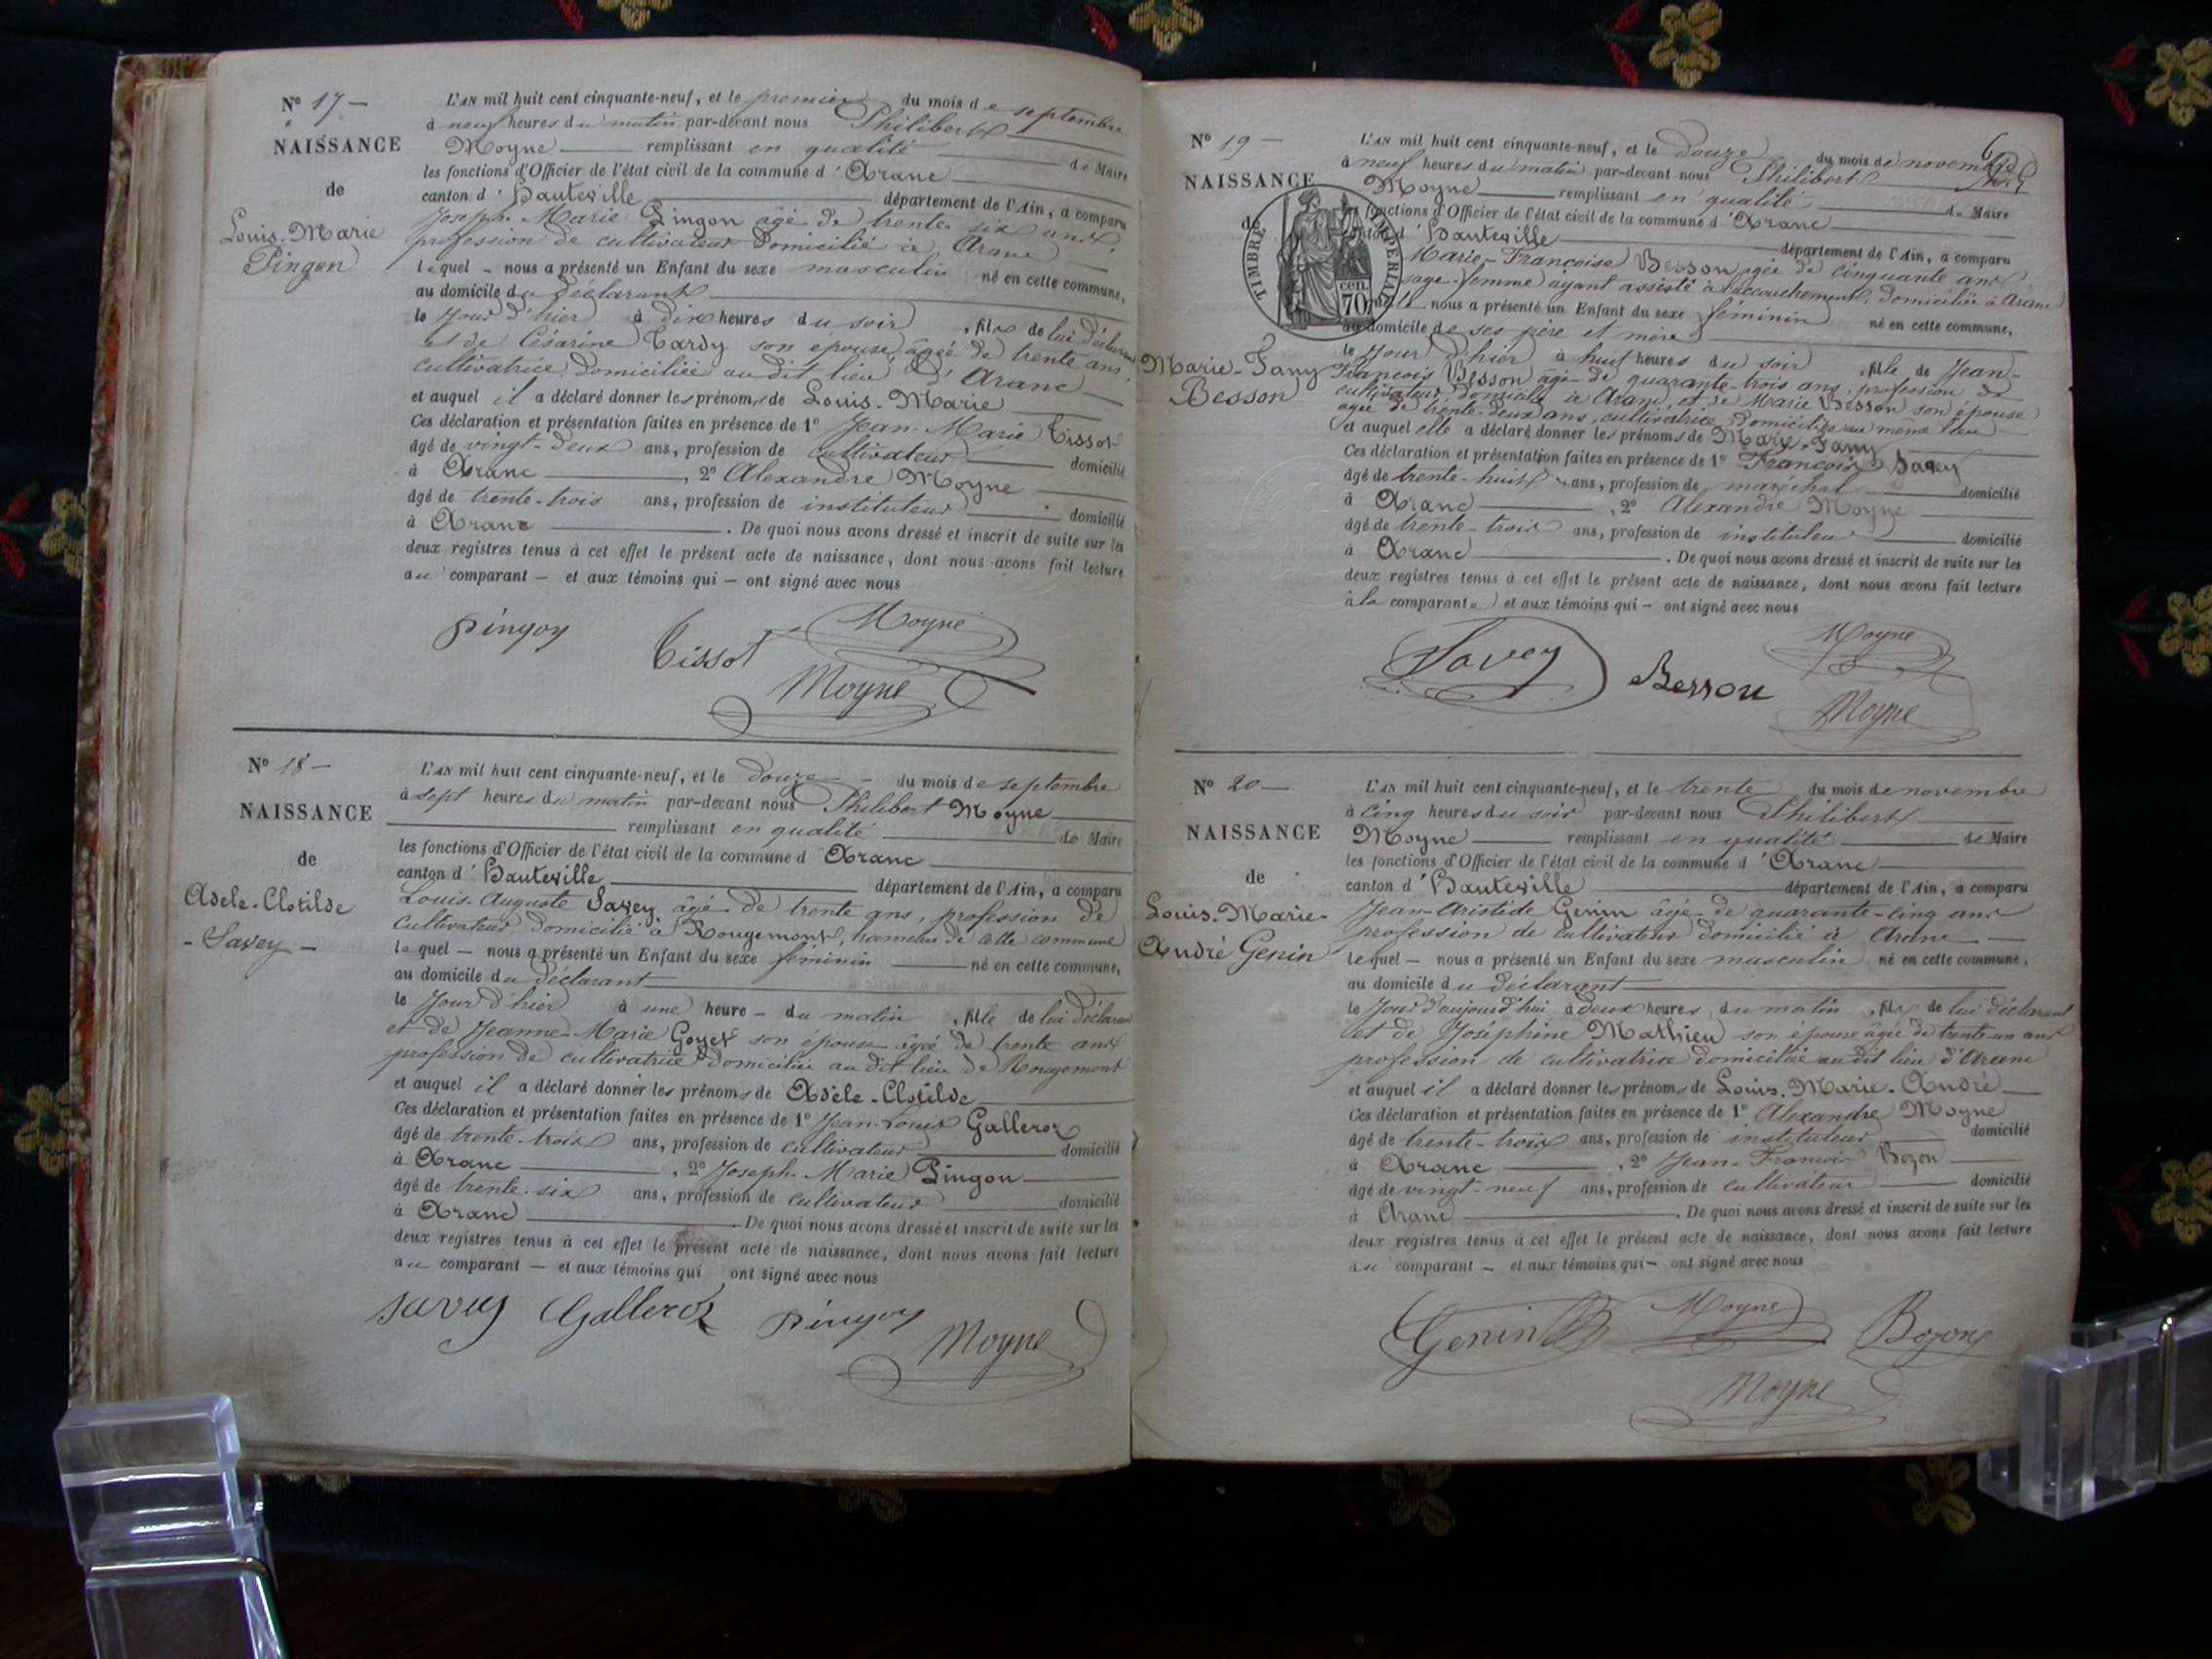 Nº 17 —
NAISSANCE
de
Louis-Marie
Pingon
L'AN mil huit cent cinquante-neuf, et le premier du mois de septembre
à neuf heures du matin par-devant nous Philibert
Moyne remplissant en qualité de Maire
les fonctions d'Officier de l'état civil de la commune d'Aranc
canton d'Hauteville département de l'Ain, a comparu
Joseph-Marie Pingon âgé de trente-six ans
profession de cultivateur domicilié à Aranc
lequel — nous a présenté un Enfant du sexe masculin né en cette commune,
au domicile du déclarant
le jour d'hier à dix heures du soir, fils de lui déclarant
et de Césarine Tardy son épouse âgée de trente ans
cultivatrice domiciliée au dit lieu d'Aranc
et auquel il a déclaré donner les prénoms de Louis-Marie
Ces déclaration et présentation faites en présence de 1º Jean-Marie Tissot
âgé de vingt-deux ans, profession de cultivateur domicilié
à Aranc, 2º Alexandre Moyne
âgé de trente-trois ans, profession de instituteur domicilié
à Aranc. De quoi nous avons dressé et inscrit de suite sur les
deux registres tenus à cet effet le présent acte de naissance, dont nous avons fait lecture
au comparant — et aux témoins qui — ont signé avec nous
Pingon
Tissot
Moyne
Moyne
Nº 18 —
NAISSANCE
de
Adele-Clotilde
- Savey -
L'AN mil huit cent cinquante-neuf, et le douze du mois de septembre
à sept heures du matin par-devant nous Philibert Moyne
remplissant en qualité de Maire
les fonctions d'Officier de l'état civil de la commune d'Aranc
canton d'Hauteville département de l'Ain, a comparu
Louis-Auguste Savey âgé de trente ans, profession de
cultivateur domicilié à Rougemont, hameau de cette commune
lequel — nous a présenté un Enfant du sexe féminin né en cette commune,
au domicile du déclarant
le jour d'hier à une heure — du matin, fille de lui déclarant
et de Jeanne-Marie Goyet son épouse âgée de trente ans
profession de cultivatrice domiciliée au dit lieu de Rougemont
et auquel il a déclaré donner les prénoms de Adèle-Clotilde
Ces déclaration et présentation faites en présence de 1º Jean-Louis Galleroz
âgé de trente-trois ans, profession de cultivateur domicilié
à Aranc, 2º Joseph-Marie Pingon
âgé de trente-six ans, profession de cultivateur domicilié
à Aranc De quoi nous avons dressé et inscrit de suite sur les
deux registres tenus à cet effet le présent acte de naissance, dont nous avons fait lecture
au comparant — et aux témoins qui ont signé avec nous
Savey Galleroz Pingon
Moyne
Nº 19 —
NAISSANCE
de
Marie-Fany
Besson
TIMBRE IMPERIAL
70 cen.
6
L'AN mil huit cent cinquante-neuf, et le douze du mois de novembre
à neuf heures du matin par-devant nous Philibert
Moyne remplissant en qualité de Maire
les fonctions d'Officier de l'état civil de la commune d'Aranc
canton d'Hauteville département de l'Ain, a comparu
Marie-Françoise Besson âgée de cinquante ans
sage-femme ayant assisté à l'accouchement, domiciliée à Aranc
nous a présenté un Enfant du sexe féminin né en cette commune,
au domicile de ses père et mère
le jour d'hier à huit heures du soir, fille de Jean-
François Besson âgé de quarante-trois ans, profession de
cultivateur, domicilié à Aranc, et de Marie Besson son épouse
âgée de trente-deux ans, cultivatrice domiciliée au même lieu
et auquel elle a déclaré donner les prénoms de Marie-Fany
Ces déclaration et présentation faites en présence de 1º François Savey
âgé de trente-huit ans, profession de maréchal domicilié
à Aranc, 2º Alexandre Moyne
âgé de trente-trois ans, profession de instituteur domicilié
à Aranc. De quoi nous avons dressé et inscrit de suite sur les
deux registres tenus à cet effet le présent acte de naissance, dont nous avons fait lecture
à la comparante et aux témoins qui — ont signé avec nous
Savey
Besson
Moyne
Moyne
Nº 20 —
NAISSANCE
de
Louis-Marie-
André Genin
L'AN mil huit cent cinquante-neuf, et le trente du mois de novembre
à cinq heures du soir par-devant nous Philibert
Moyne remplissant en qualité de Maire
les fonctions d'Officier de l'état civil de la commune d'Aranc
canton d'Hauteville département de l'Ain, a comparu
Jean-Aristide Genin âgé de quarante-cinq ans
profession de cultivateur domicilié à Aranc
lequel — nous a présenté un Enfant du sexe masculin né en cette commune,
au domicile du déclarant
le jour d'aujourd'hui à deux heures du matin, fils de lui déclarant
et de Joséphine Mathieu son épouse âgée de trente-un ans
profession de cultivatrice domiciliée au dit lieu d'Aranc
et auquel il a déclaré donner les prénoms de Louis-Marie-André
Ces déclaration et présentation faites en présence de 1º Alexandre Moyne
âgé de trente-trois ans, profession de instituteur domicilié
à Aranc, 2º Jean-François Bozon
âgé de vingt-neuf ans, profession de cultivateur domicilié
à Aranc. De quoi nous avons dressé et inscrit de suite sur les
deux registres tenus à cet effet le présent acte de naissance, dont nous avons fait lecture
au comparant — et aux témoins qui — ont signé avec nous
Genin Moyne Bozon
Moyne